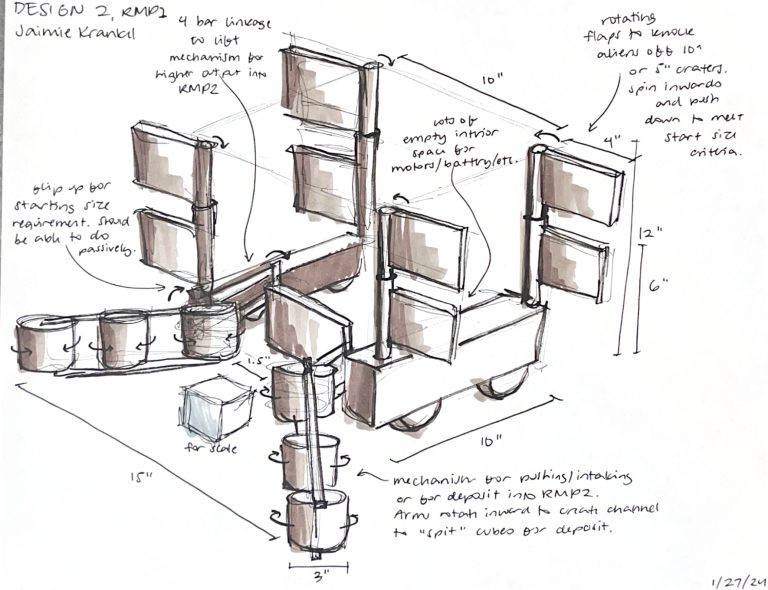 DESIGN 2, RMP2
Jaimie Krankl
4 bar linkage
to lift
mechanism for
higher output into
RMP2
rotating
flaps to knock
aliens off 10"
or 5" craters.
spin inwards
and push
down to meet
start size
criteria.
10"
4"
lots of
empty interior
space for
motors/battery/etc.
flip up for
starting size
requirement. Should
be able to do
passively.
12"
6"
1.5"
for scale
15"
10"
mechanism for pushing/intaking
or for deposit into RMP2.
Arms rotate inward to create channel
to "spit" cubes for deposit.
3"
1/27/24